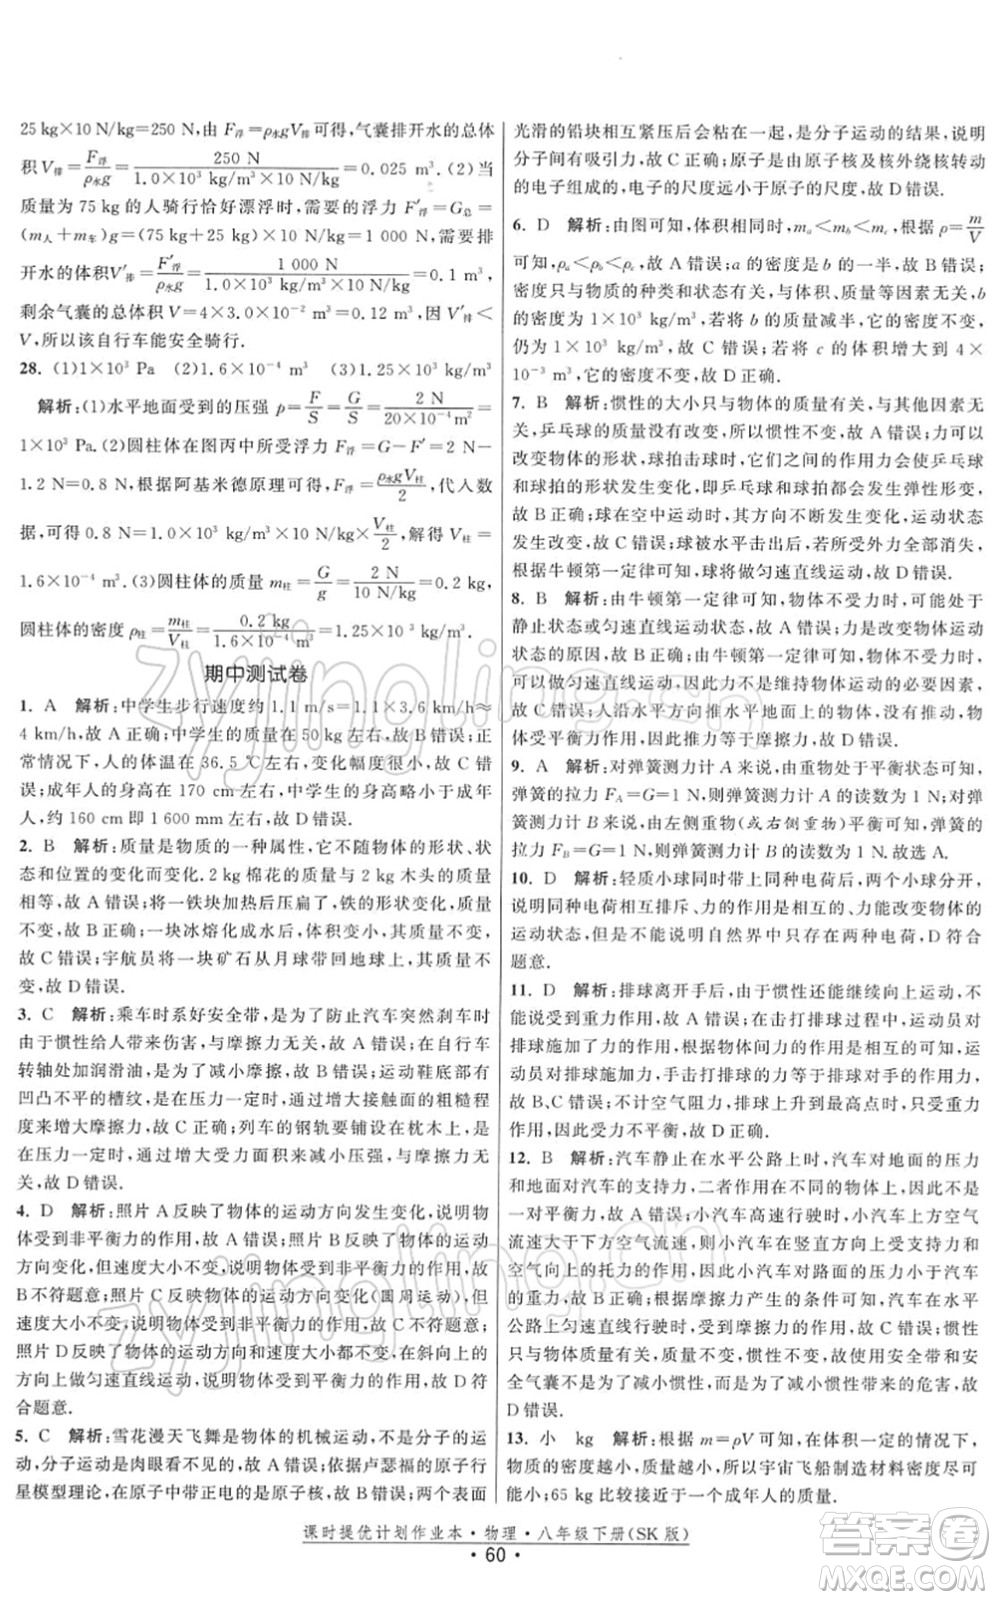 25 kg×10 N/kg=250 N,由 F浮=ρ水gV排可得,气囊排开水的总体
积 V排=F浮/ρ水g=250 N/(1.0×10³ kg/m³×10 N/kg)=0.025 m³.(2)当
质量为 75 kg 的人骑行恰好漂浮时,需要的浮力 F′浮=G总=
(m人+m车)g=(75 kg+25 kg)×10 N/kg=1 000 N,需要排
开水的体积V′排=F′浮/ρ水g=1 000 N/(1.0×10³ kg/m³×10 N/kg)=0.1 m³,
剩余气囊的总体积 V=4×3.0×10⁻² m³=0.12 m³.因 V′排<
V,所以该自行车能安全骑行.
28. (1)1×10³ Pa (2)1.6×10⁻⁴ m³ (3)1.25×10³ kg/m³
解析:(1)水平地面受到的压强 p=F/S=G/S=2 N/(20×10⁻⁴m²)=
1×10³ Pa.(2)圆柱体在图丙中所受浮力 F浮=G-F′=2 N-
1.2 N=0.8 N,根据阿基米德原理可得,F浮=ρ水gV柱/2,代入数
据,可得 0.8 N=1.0×10³ kg/m³×10 N/kg×V柱/2,解得 V柱=
1.6×10⁻⁴ m³.(3)圆柱体的质量 m柱=G/g=2 N/(10 N/kg)=0.2 kg,
圆柱体的密度 ρ柱=m柱/V柱=0.2 kg/(1.6×10⁻⁴ m³)=1.25×10³ kg/m³.
期中测试卷
1. A 解析:中学生步行速度约 1.1 m/s=1.1×3.6 km/h≈
4 km/h,故 A 正确;中学生的质量在 50 kg 左右,故 B 错误;正
常情况下,人的体温在 36.5 ℃左右,变化幅度很小,故 C 错
误;成年人的身高在 170 cm 左右,中学生的身高略小于成年
人,约 160 cm 即 1 600 mm 左右,故 D 错误.
2. B 解析:质量是物质的一种属性,它不随物体的形状、状
态和位置的变化而变化.2 kg 棉花的质量与 2 kg 木头的质量
相同,故 A 错误;将一铁块加热后压扁了,铁的形状变化,质量
不变,故 B 正确;一块冰熔化成水后,体积变小,其质量不变,
故 C 错误;宇航员将一块矿石从月球带回地球上,其质量不
变,故 D 错误.
3. C 解析:乘车时系好安全带,是为了防止汽车突然刹车时
由于惯性给人带来伤害,与摩擦力无关,故 A 错误;在自行车
转轴处加润滑油,是为了减小摩擦,故 B 错误;运动鞋底部有
凹凸不平的槽纹,是在压力一定时,通过增大接触面的粗糙程
度来增大摩擦力,故 C 正确;列车的钢轨要铺设在枕木上,是
在压力一定时,通过增大受力面积来减小压强,与摩擦力无
关,故 D 错误.
4. D 解析:照片 A反映了物体的运动方向发生改变,说明物
体受到非平衡力的作用,故 A 错误;照片 B 反映了物体的运动
方向变化,但速度大小不变,说明物体受到非平衡力的作用,故
B不符合题意;照片 C 反映了物体的运动方向变化(圆周运动),但
速度大小不变,说明物体受到非平衡力的作用,故 C 不符合题意;
照片 D反映了物体的运动方向和速度大小都不变,在斜向上的
方向上做匀速直线运动,说明物体受到平衡力的作用,故 D 符
合题意.
5. C 解析:雪花漫天飞舞是物体的机械运动,不是分子的运
动,分子运动是肉眼看不见的,故 A 错误;依据卢瑟福的原子行
星模型理论,在原子中带正电的是原子核,故 B 错误;两个表面
光滑的铅块相互紧压后会粘在一起,是分子运动的结果,说明
分子间有吸引力,故 C 正确;原子是由原子核及核外绕核转动
的电子组成的,电子的尺度远小于原子的尺度,故 D 错误.
6. D 解析:由图可知,体积相同时,mₐ<m_b<m_c,根据 ρ=m/V
可知,ρₐ<ρ_b<ρ_c,故 A 错误;a 的密度是 b 的一半,故 B 错误;
密度只与物质的种类和状态有关,与体积、质量无关,将 b
的体积减半,它的质量减半,其密度不变,故 C 错误;若将 c 的体积增大到 4×
10⁻³ m³,它的密度不变,故 D 正确.
7. B 解析:惯性的大小只与物体的质量有关,与其他因素无
关,乒乓球的质量没有改变,所以惯性不变,故 A 错误;力可以
改变物体的形状,球拍击球时,它们之间的作用力会使乒乓球
和球拍的形状发生变化,即乒乓球和球拍都发生了弹性形变,
故 B 正确;球在空中运动时,其方向不断发生变化,运动状态
发生改变,故 C 错误;球被水平击出后,若外力全部消失,
根据牛顿第一定律可知,球将做匀速直线运动,故 D 错误.
8. B 解析:由牛顿第一定律可知,物体不受力时,可能处于
静止状态或匀速直线运动状态,故 A 错误;力是改变物体运动
状态的原因,故 B 正确;由牛顿第一定律可知,物体不受力时,
可以做匀速直线运动,所以力不是维持物体运动的必要因素,
故 C 错误;人沿水平方向推水平地面上的物体,没有推动,物体
受平衡力作用,因此推力等于摩擦力,故 D 错误.
9. A 解析:对弹簧测力计 A 来说,由重物处于平衡状态可知,
弹簧的拉力 F_A=G=1 N,故弹簧测力计 A 的读数为 1 N;对弹
簧测力计 B 来说,由左侧重物(或右侧重物)平衡可知,弹簧的
拉力 F_B=G=1 N,则弹簧测力计 B 的读数为 1 N.故选 A.
10. D 解析:轻质小球同时带上同种电荷后,两个小球分开,
说明同种电荷相互排斥、力的作用是相互的、力能改变物体的
运动状态,但是不能说明自然界中只存在两种电荷,D 符合
题意.
11. D 解析:排球离开手后,由于惯性还能继续向上运动,不
能说受到惯性力的作用,故 A 错误;在击打排球过程中,运动员
施加了力,根据物体间力的作用是相互的可知,运动员
也受到排球的作用力,手击打排球的力等于排球对手的力,
故 B、C 错误;不计空气阻力,排球上升到最高点时,只受重力
作用,因此受力不平衡,故 D 正确.
12. B 解析:汽车静止在水平公路上时,汽车对地面的压力
和地面对汽车的支持力,二者作用在不同的物体上,因此不是
一对平衡力,故 A 错误;小汽车高速行驶时,小汽车上方空气
流速大于下方空气流速,因此小汽车在竖直方向上受支持力
和向上的托力的作用,因此,小汽车对路面的压力小于汽车
的重力,故 B 正确;根据摩擦力产生的条件可知,汽车在水平
公路上匀速直线行驶时,会受到摩擦力的作用,故 C 错误;惯
性大小只与质量有关,质量不变,惯性不变,故使用安全带和安
全气囊不是为了减小惯性,而是为了减小惯性带来的危害,故
D 错误.
13. 小 kg 解析:根据 m=ρV可知,在体积一定的情况下,
物质的密度越小,质量越小,所以宇宙飞船制造材料密度应尽
量小;65 kg 比较接近于一个成年人的质量.
课时提优计划作业本·物理·八年级下册(SK 版)
·60·
zyjingling.cn
zyjingling.cn
答案圈
MXQE.COM